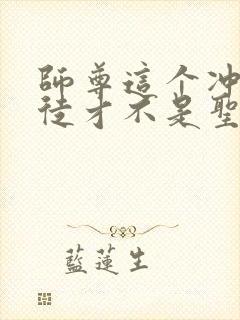 師尊這个冲
徒才不是聖
藍蓮生